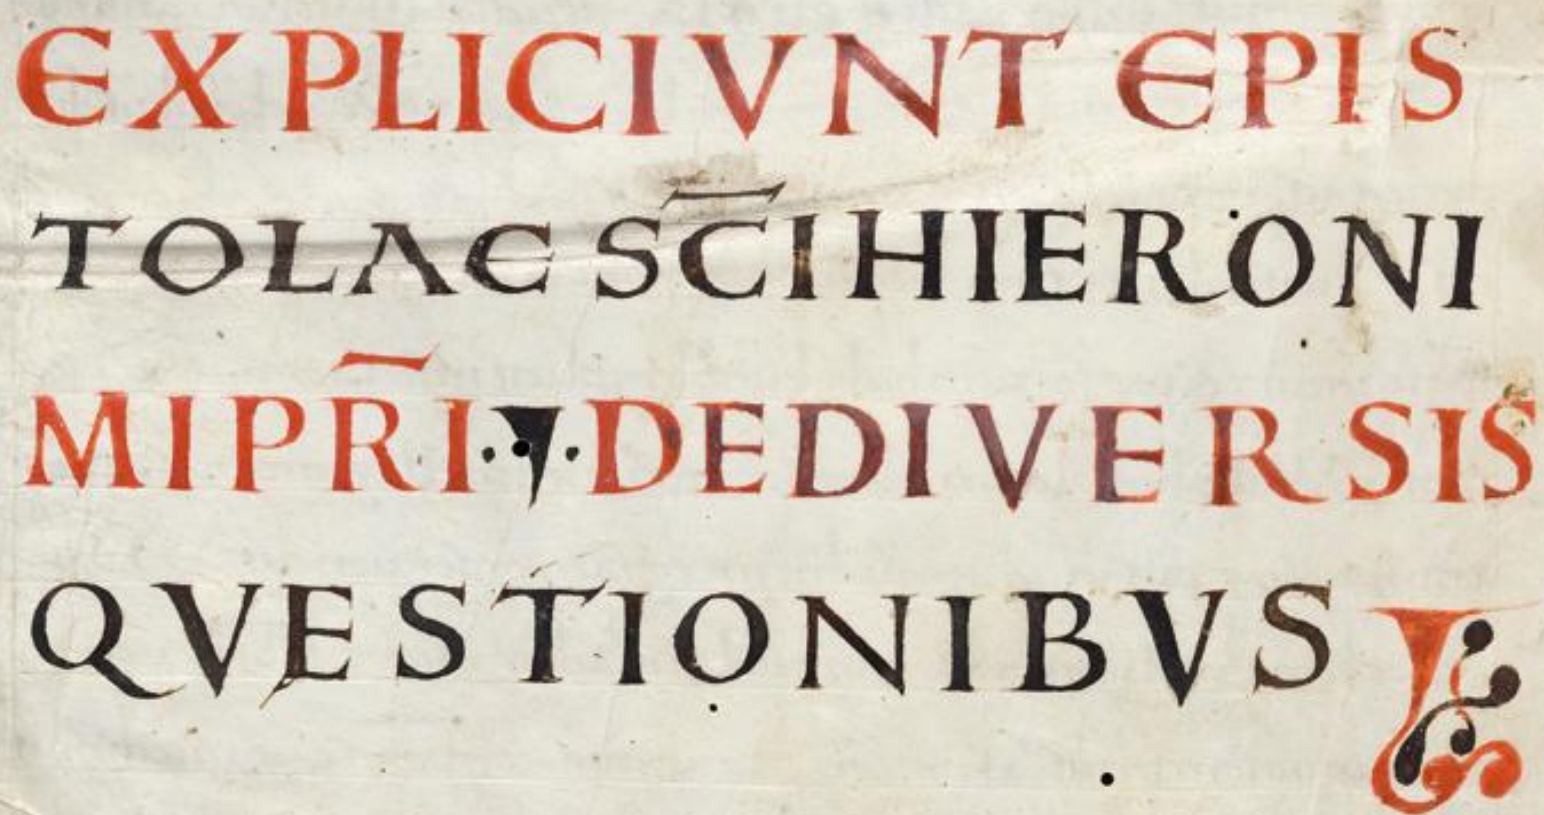 EXPLICIVNT EPIS
TOLAE SC̄I HIERONI
MI PR̄I · DE DIVERSIS
QVESTIONIBVS